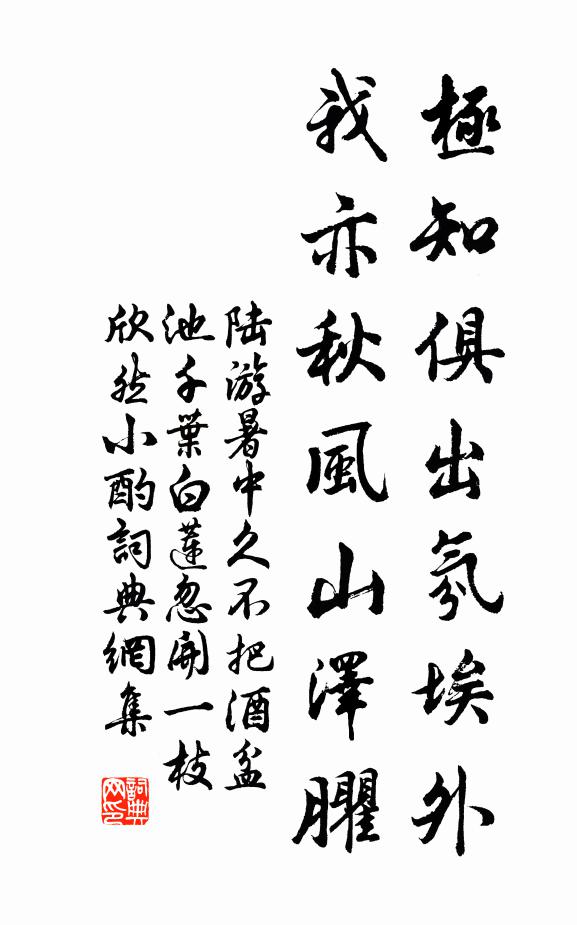 極知俱出氛埃外
我亦秋風山澤臞
陆游暑中久不把酒盆
池千葉白蓮忽開一枝
欣然小酌詞典網集
詞典
网印